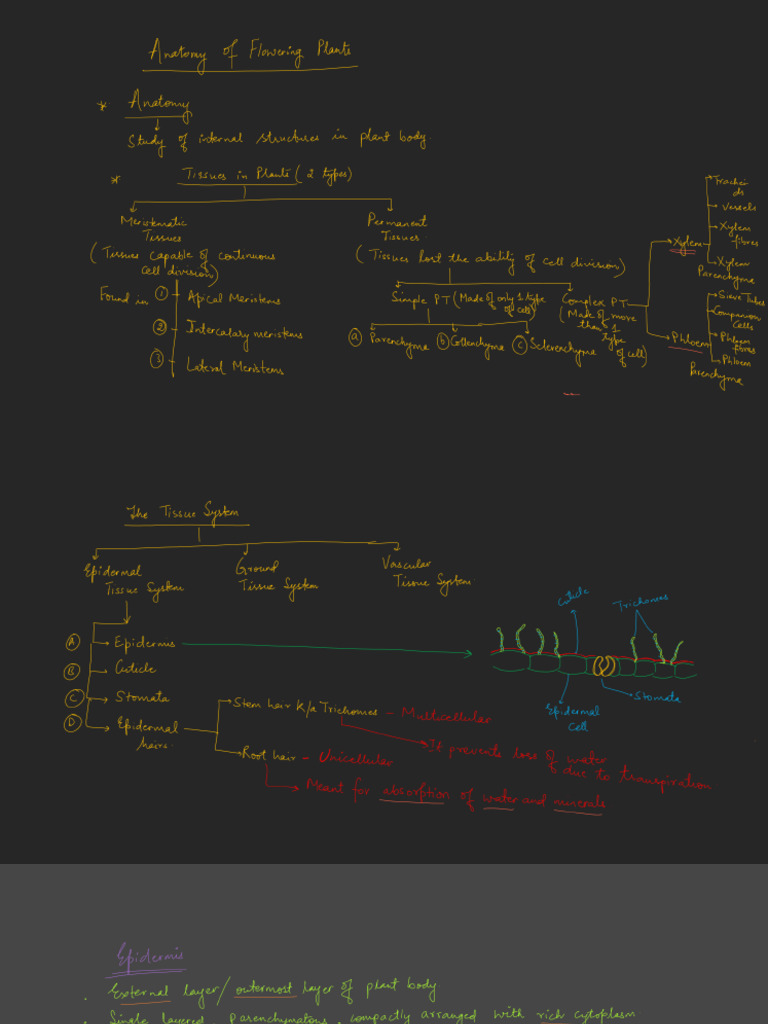 Anatomy of Flowering Plants
* Anatomy
Study of internal structures in plant body.
* Tissues in Plants (2 types)
Meristematic
Tissues
(Tissues capable of continuous
cell division)
Found in
1 Apical Meristems
2 Intercalary meristems
3 Lateral Meristems
Permanent
Tissues
(Tissues lost the ability of cell division)
Simple PT (Made of only 1 type
of cell)
a Parenchyma b Collenchyma c Sclerenchyma
Complex PT
(Made of more
than 1
type
of cell)
Xylem
Trachei
ds
Vessels
Xylem
fibres
Xylem
Parenchyma
Phloem
Sieve Tubes
Companion
Cells
Phloem
fibres
Phloem
Parenchyma
The Tissue System
Epidermal
Tissue System
Ground
Tissue System
Vascular
Tissue System
A Epidermis
B Cuticle
C Stomata
D Epidermal
hairs.
Cuticle
Trichomes
Epidermal
Cell
Stomata
Stem hair K/a Trichomes - Multicellular
It prevents loss of water
due to transpiration
Root hair - Unicellular
Meant for absorption of water and minerals
Epidermis
. External layer/outermost layer of plant body
. Single layered, Parenchymatous, compactly arranged with rich cytoplasm